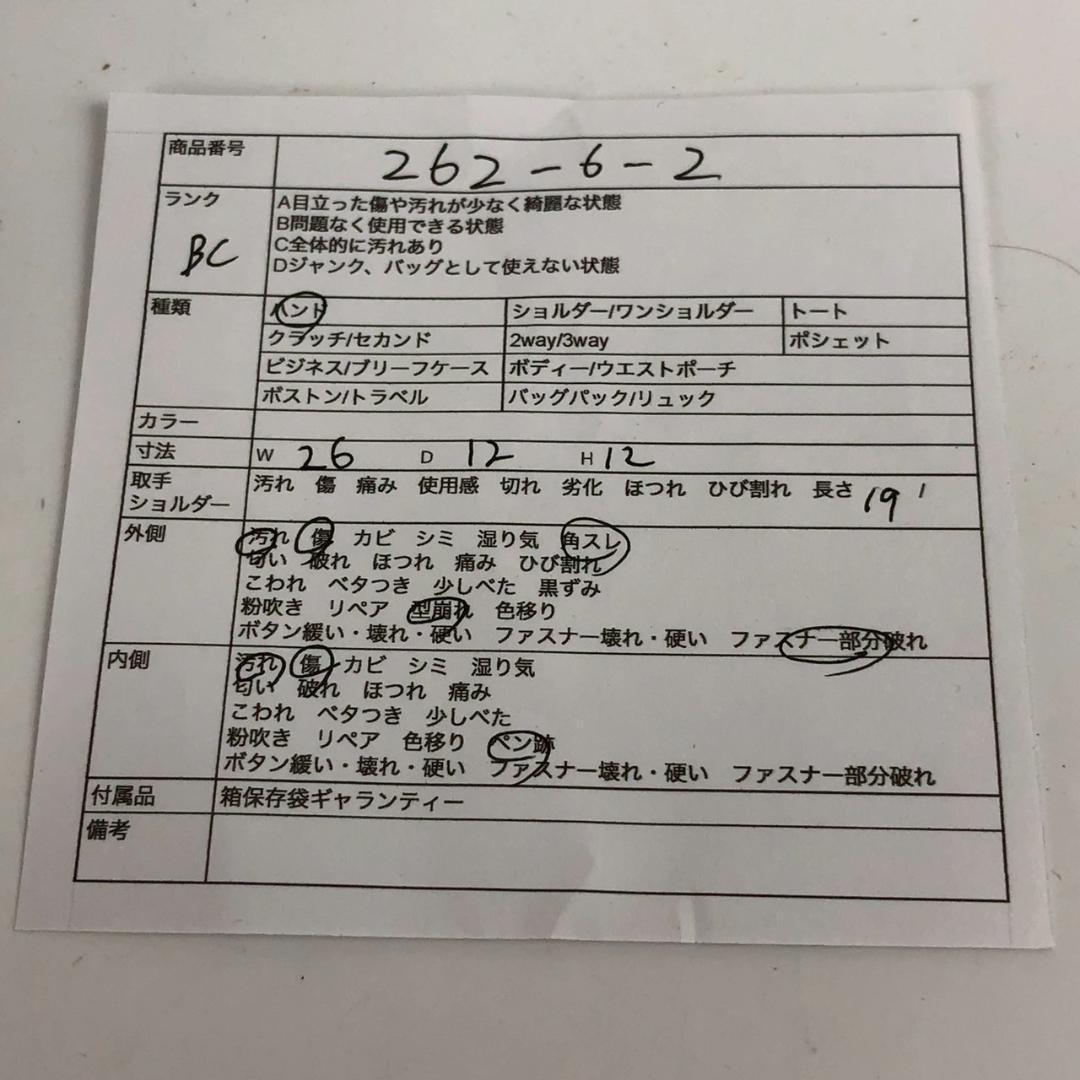 商品番号 262-6-2
ランク A目立った傷や汚れが少なく綺麗な状態
B問題なく使用できる状態
BC C全体的に汚れあり
Dジャンク、バッグとして使えない状態
種類 ハンド ショルダー/ワンショルダー トート
クラッチ/セカンド 2way/3way ポシェット
ビジネス/ブリーフケース ボディー/ウエストポーチ
ボストン/トラベル バッグパック/リュック
カラー
寸法 W 26 D 12 H 12
取手 汚れ 傷 痛み 使用感 切れ 劣化 ほつれ ひび割れ 長さ 19
ショルダー
外側 汚れ 傷 カビ シミ 湿り気 角スレ
匂い 破れ ほつれ 痛み ひび割れ
こわれ ベタつき 少しべた 黒ずみ
粉吹き リペア 型崩れ 色移り
ボタン緩い・壊れ・硬い ファスナー壊れ・硬い ファスナー部分破れ
内側 汚れ 傷 カビ シミ 湿り気
匂い 破れ ほつれ 痛み
こわれ ベタつき 少しべた
粉吹き リペア 色移り ペン跡
ボタン緩い・壊れ・硬い ファスナー壊れ・硬い ファスナー部分破れ
付属品 箱保存袋ギャランティー
備考